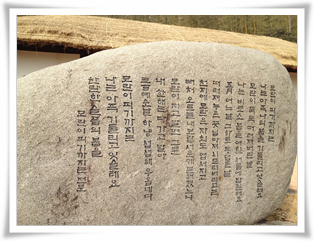 모란이 피기까지는
나는 아즉 나의 봄을 기둘리고 잇슬테요
모란이 뚝뚝 떠러져버린 날
나는 비로소 봄을 여흰 서름에 잠길테요
어느날 그 하로 무덥든 날
떠러져 누은 꽃닢마져 시드러버리고는
천지에 모란은 자최도 업서지고
뻐쳐 오르든 내 보람 서운케
모란이 지고 말면 그뿐
내 한해는 다 가고 말아
예순날 하냥 섭섭해 우옵내다
모란이 피기까지는
나는 아즉 기둘리고 잇슬테요
찬란한 슬픔의 봄을
모란이 피기까지는